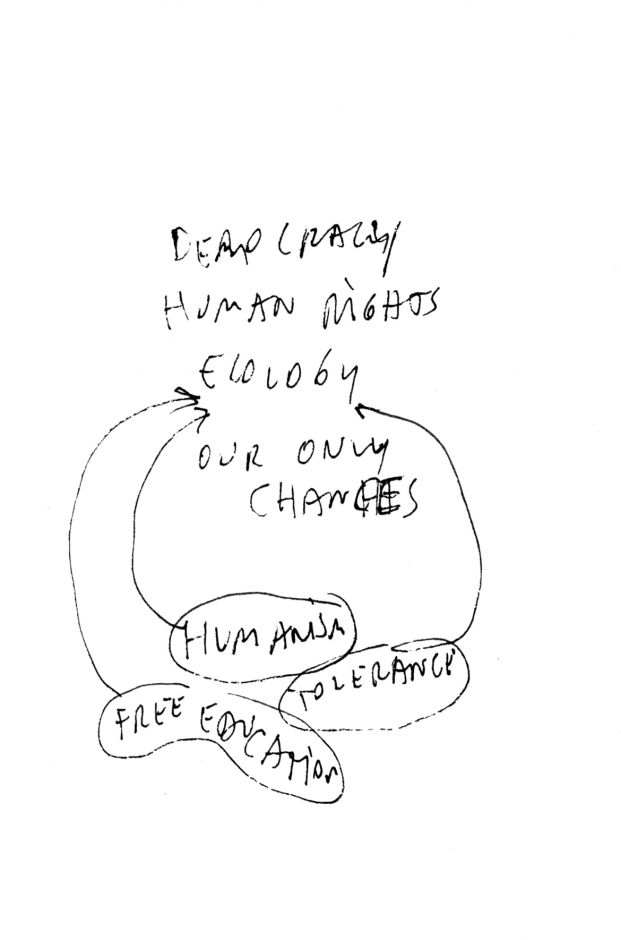 DEMOCRACY
HUMAN RIGHTS
ECOLOGY
OUR ONLY
CHANCES
HUMANISM
TOLERANCE
FREE EDUCATION